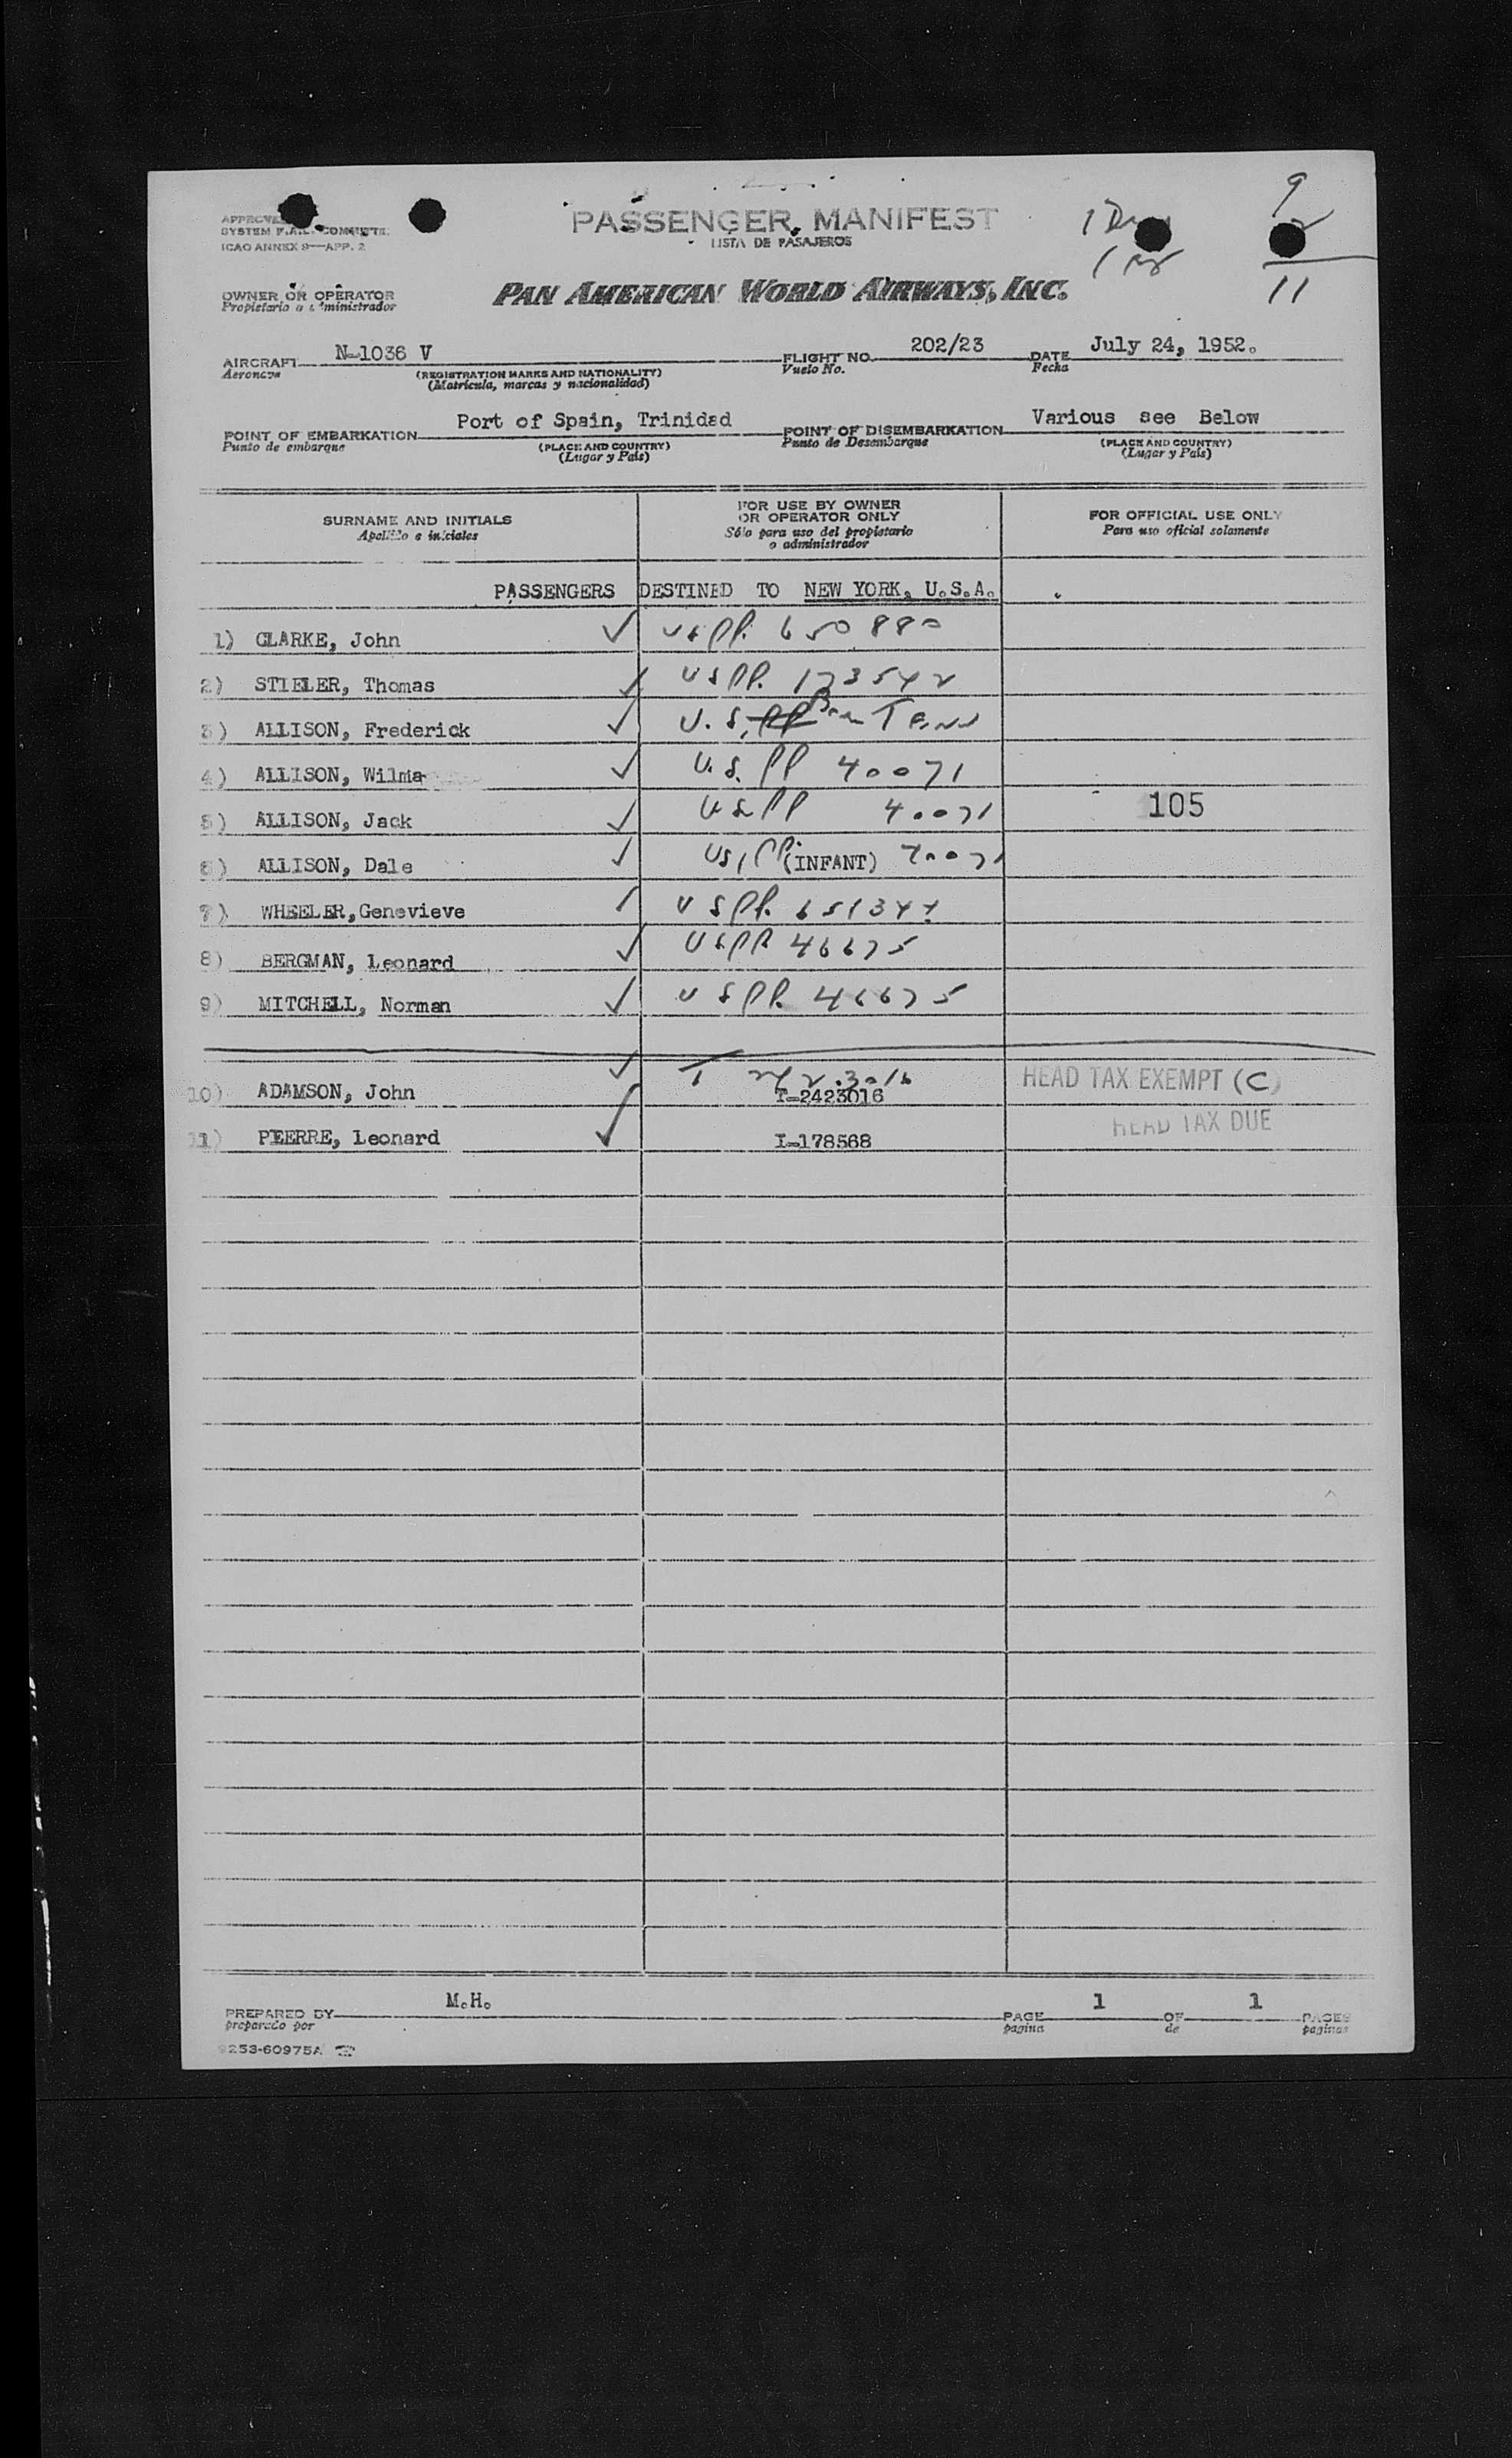 9
PASSENGER MANIFEST
LISTA DE PASAJEROS
SYSTEM F.A.L. COMMITTE
ICAO ANNEX 9—APP. 2
OWNER OR OPERATOR
PAN AMERICAN WORLD AIRWAYS, INC.
11
AIRCRAFT N-1036 V FLIGHT NO. 202/23 DATE July 24, 1952.
Aeronave (REGISTRATION MARKS AND NATIONALITY) Vuelo No. Fecha
(Matrícula, marcas y nacionalidad)
POINT OF EMBARKATION Port of Spain, Trinidad POINT OF DISEMBARKATION Various see Below
Punto de embarque (PLACE AND COUNTRY) Punto de Desembarque (PLACE AND COUNTRY)
(Lugar y País) (Lugar y País)
SURNAME AND INITIALS FOR USE BY OWNER OR OPERATOR ONLY FOR OFFICIAL USE ONLY
Apellido e iniciales Sólo para uso del propietario o administrador Para uso oficial solamente
PASSENGERS DESTINED TO NEW YORK, U.S.A.
1) CLARKE, John US PP. 650880
2) STIELER, Thomas US PP. 173542
3) ALLISON, Frederick U.S. PP Born Tenn
4) ALLISON, Wilma U.S. PP 40071
5) ALLISON, Jack US PP 40071 105
6) ALLISON, Dale US PP. (INFANT) 40071
7) WHEELER, Genevieve US PP.
8) BERGMAN, Leonard US PP 46675
9) MITCHELL, Norman US PP. 46675
10) ADAMSON, John T-2423016 HEAD TAX EXEMPT (C)
11) PIERRE, Leonard I-178568 HEAD TAX DUE
PREPARED BY M.H. PAGE 1 OF 1 PAGES
preparado por pagina de paginas
9253-60975A